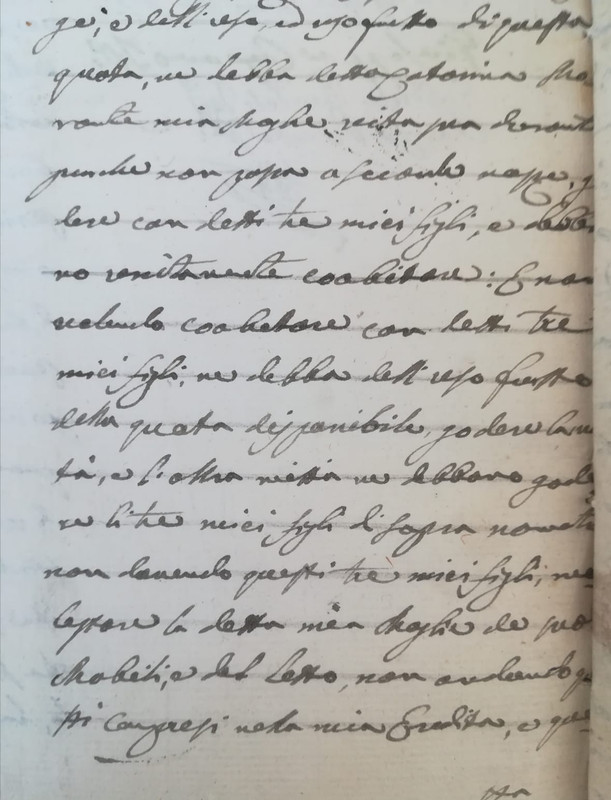 ge', e dell'uso, ed uso frutto di questa
quota, ne debba detta Catarina Mo
rante mia Moglie vita sua durante
purche non passa a seconde nozze, g
dere con detti tre miei figli, e debba
no unitamente coabitare: E non
volendo coabitare con detti tre
miei figli, ne debba dell'uso frutto
della quota disponibile, godere la m
tà, e l'altra mettà ne debbano gode
re li tre miei figli di sopra nomati
non dovendo questi tre miei figli, mo
lestare la detta mia Moglie de suo
Mobili, e del Letto, non andando q
sti Compresi nella mia Eredita, e que
sta